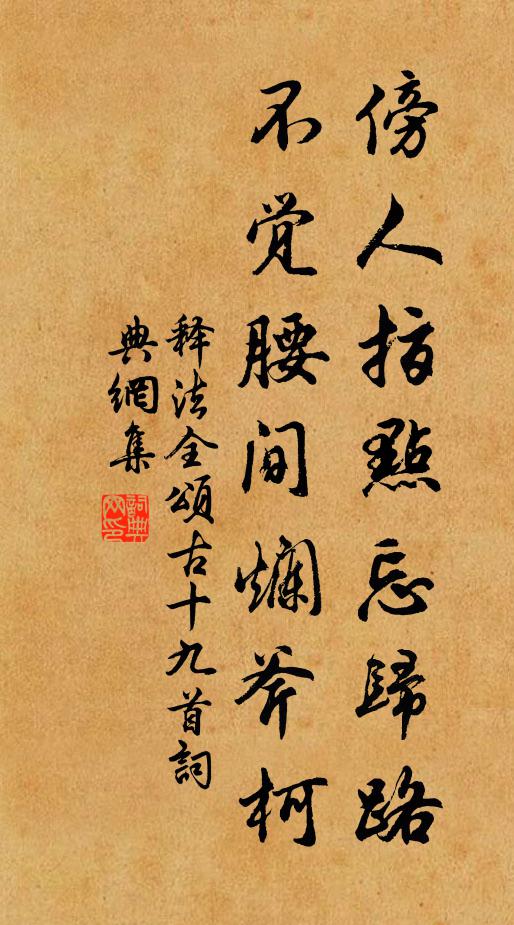 傍人指點忘歸路
不觉腰间爛斧柯
释法全頌古十九首詞
典網集
詞典網印